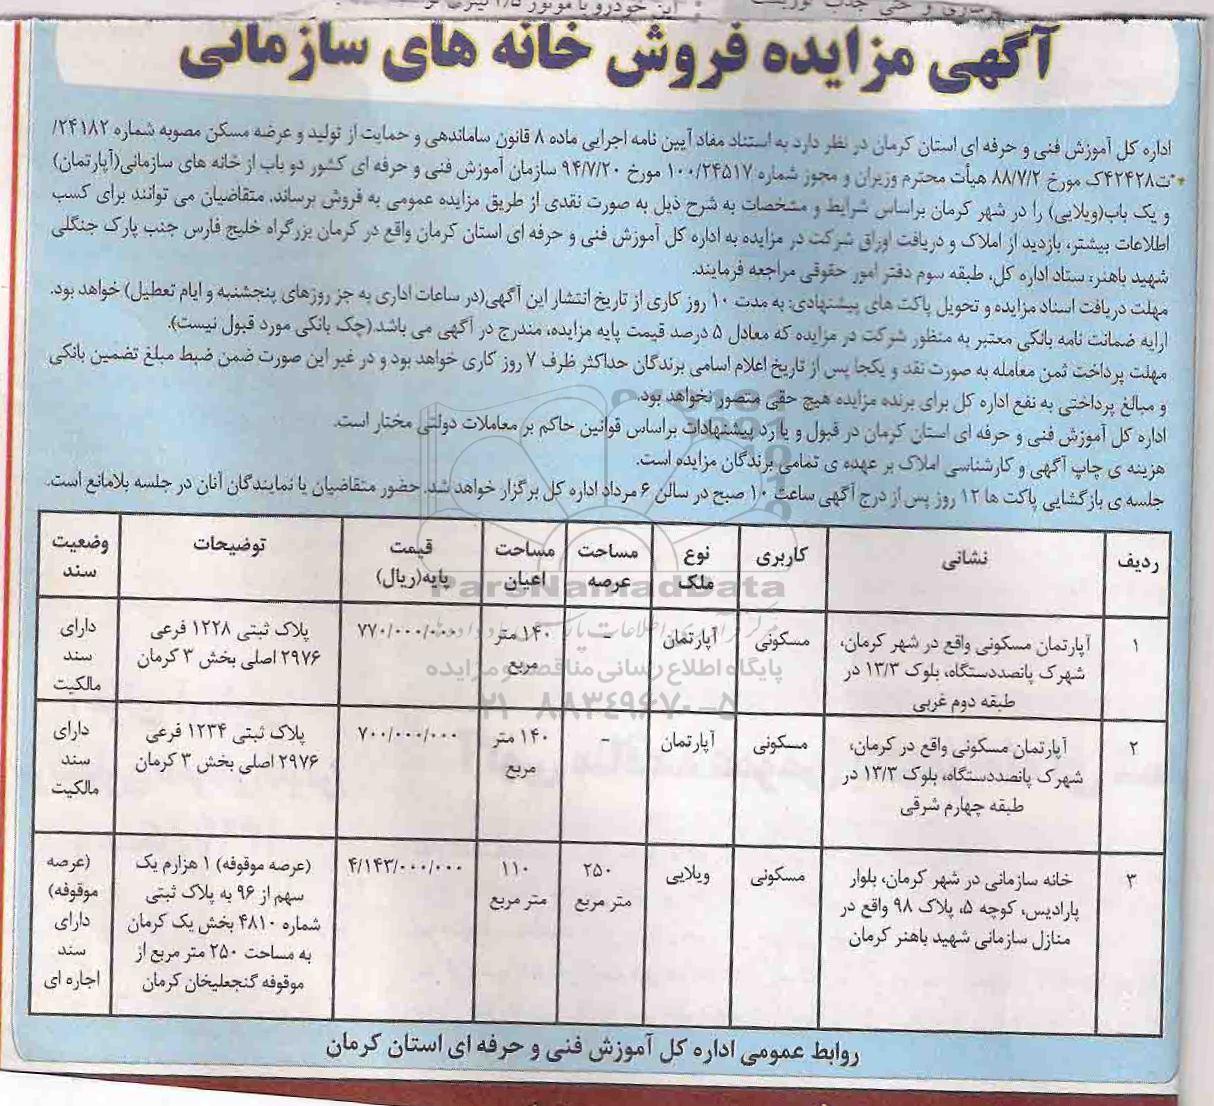 آگهی مزایده فروش خانه های سازمانی
اداره کل آموزش فنی و حرفه ای استان کرمان در نظر دارد به استناد مفاد آیین نامه اجرایی ماده ۸ قانون ساماندهی و حمایت از تولید و عرضه مسکن مصوبه شماره ۲۴۱۸۲/
ت۴۲۴۲۸ک مورخ ۸۸/۷/۲ هیأت محترم وزیران و مجوز شماره ۱۰۰/۲۴۵۱۷ مورخ ۹۴/۷/۲۰ سازمان آموزش فنی و حرفه ای کشور دو باب از خانه های سازمانی(آپارتمان)
و یک باب(ویلایی) را در شهر کرمان براساس شرایط و مشخصات به شرح ذیل به صورت نقدی از طریق مزایده عمومی به فروش برساند، متقاضیان می توانند برای کسب
اطلاعات بیشتر، بازدید از املاک و دریافت اوراق شرکت در مزایده به اداره کل آموزش فنی و حرفه ای استان کرمان واقع در کرمان بزرگراه خلیج فارس جنب پارک جنگلی
شهید باهنر، ستاد اداره کل، طبقه سوم دفتر امور حقوقی مراجعه فرمایند.
مهلت دریافت اسناد مزایده و تحویل پاکت های پیشنهادی: به مدت ۱۰ روز کاری از تاریخ انتشار این آگهی(در ساعات اداری به جز روزهای پنجشنبه و ایام تعطیل) خواهد بود.
ارایه ضمانت نامه بانکی معتبر به منظور شرکت در مزایده که معادل ۵ درصد قیمت پایه مزایده، مندرج در آگهی می باشد.(چک بانکی مورد قبول نیست).
مهلت پرداخت ثمن معامله به صورت نقد و یکجا پس از تاریخ اعلام اسامی برندگان حداکثر ظرف ۷ روز کاری خواهد بود و در غیر این صورت ضمن ضبط مبلغ تضمین بانکی
و مبالغ پرداختی به نفع اداره کل برای برنده مزایده هیچ حقی متصور نخواهد بود.
اداره کل آموزش فنی و حرفه ای استان کرمان در قبول و یا رد پیشنهادات براساس قوانین حاکم بر معاملات دولتی مختار است.
هزینه ی چاپ آگهی و کارشناسی املاک بر عهده ی تمامی برندگان مزایده است.
جلسه ی بازگشایی پاکت ها ۱۲ روز پس از درج آگهی ساعت ۱۰ صبح در سالن ۶ مرداد اداره کل برگزار خواهد شد. حضور متقاضیان یا نمایندگان آنان در جلسه بلامانع است.
ردیف نشانی کاربری نوع ملک مساحت عرصه مساحت اعیان قیمت پایه(ریال) توضیحات وضعیت سند
۱ آپارتمان مسکونی واقع در شهر کرمان، شهرک پانصددستگاه، بلوک ۱۳/۳ در طبقه دوم غربی مسکونی آپارتمان - ۱۴۰ متر مربع ۷۷۰/۰۰۰/۰۰۰ پلاک ثبتی ۱۲۲۸ فرعی ۲۹۷۶ اصلی بخش ۳ کرمان دارای سند مالکیت
۲ آپارتمان مسکونی واقع در کرمان، شهرک پانصددستگاه، بلوک ۱۳/۳ در طبقه چهارم شرقی مسکونی آپارتمان - ۱۴۰ متر مربع ۷۰۰/۰۰۰/۰۰۰ پلاک ثبتی ۱۲۳۴ فرعی ۲۹۷۶ اصلی بخش ۳ کرمان دارای سند مالکیت
۳ خانه سازمانی در شهر کرمان، بلوار پارادیس، کوچه ۵، پلاک ۹۸ واقع در منازل سازمانی شهید باهنر کرمان مسکونی ویلایی ۲۵۰ متر مربع ۱۱۰ متر مربع ۴/۱۴۳/۰۰۰/۰۰۰ (عرصه موقوفه) ۱ هزارم یک سهم از ۹۶ به پلاک ثبتی شماره ۴۸۱۰ بخش یک کرمان به مساحت ۲۵۰ متر مربع از موقوفه گنجعلیخان کرمان (عرصه موقوفه) دارای سند اجاره ای
ParsNamadData
پایگاه اطلاع رسانی مناقصه و مزایده
۰۲۱-۸۸۳۴۹۶۷۰-۵
روابط عمومی اداره کل آموزش فنی و حرفه ای استان کرمان